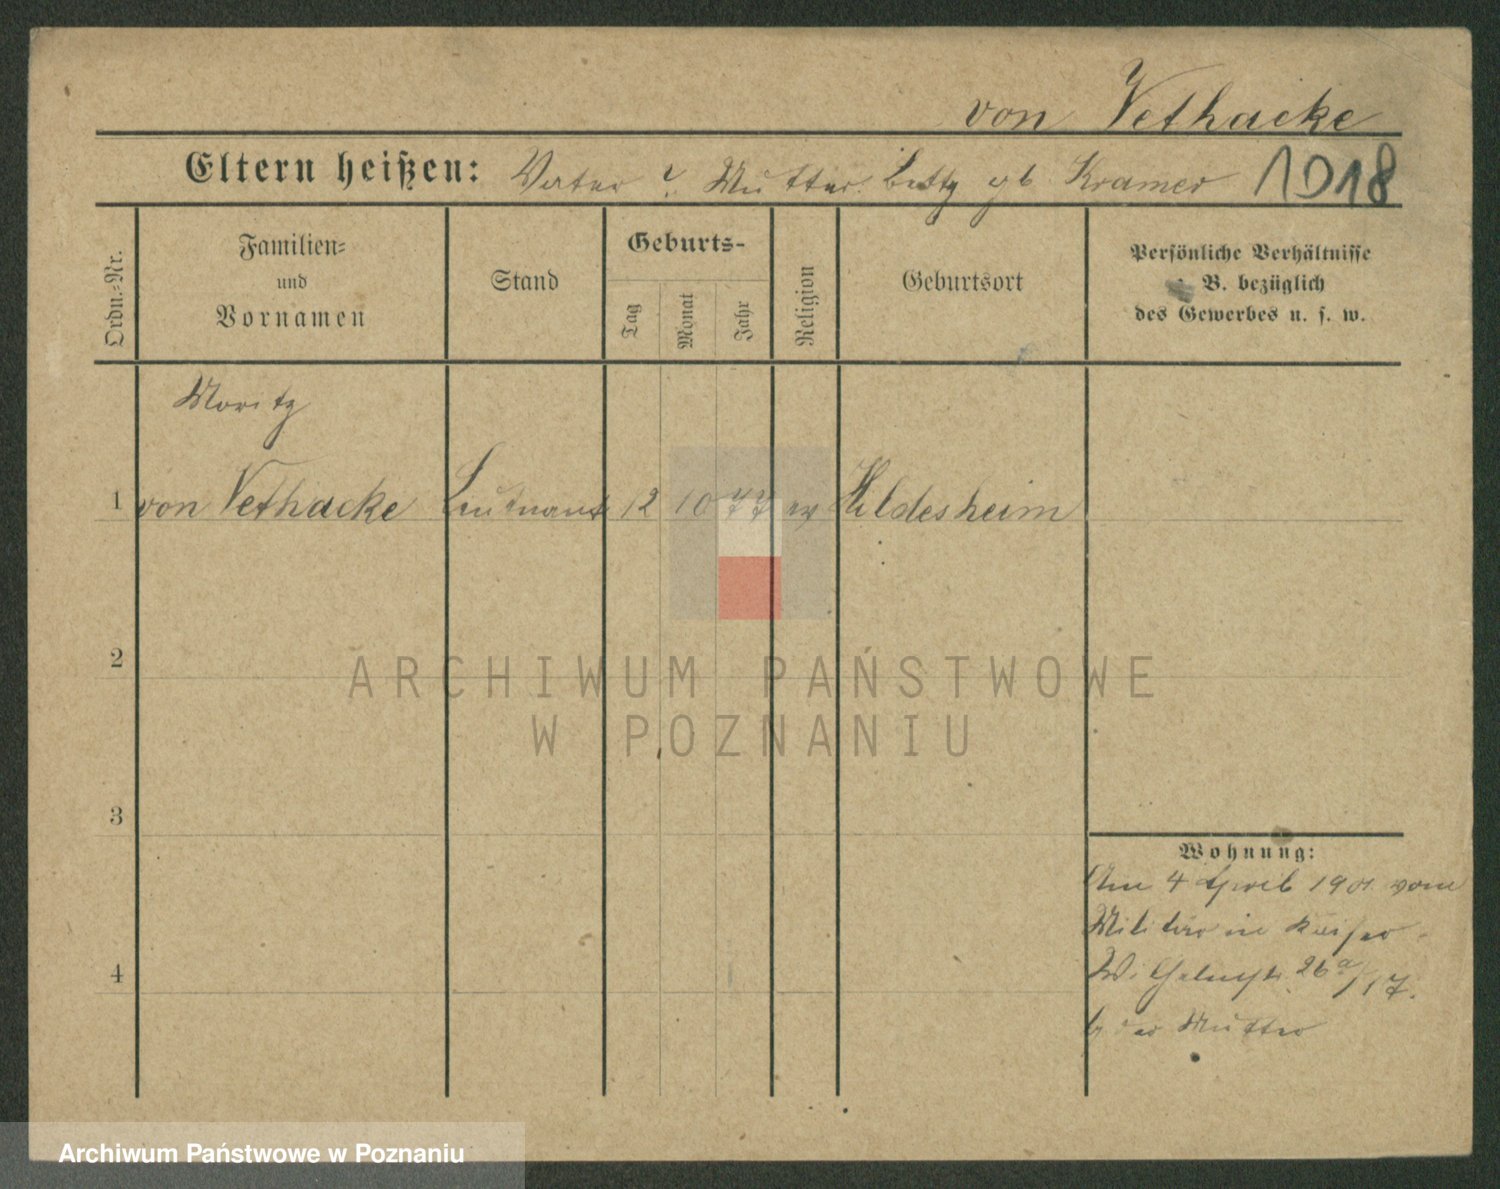 von Vethacke
Eltern heißen: Vater ? Mutter: Betty gb Kramer 1018
Ordn.-Nr.
Familien-
und
Vornamen
Stand
Geburts-
Tag
Monat
Jahr
Religion
Geburtsort
Persönliche Verhältnisse
z. B. bezüglich
des Gewerbes u. s. w.
Moritz
1 von Vethacke Leutnant 12 10 77 ev Hildesheim
2
3
4
Wohnung:
Am 4 April 1901 vom
Militär in Kaiser
Wilhelmstr. 26a/17.
b der Mutter
ARCHIWUM PAŃSTWOWE
W POZNANIU
Archiwum Państwowe w Poznaniu